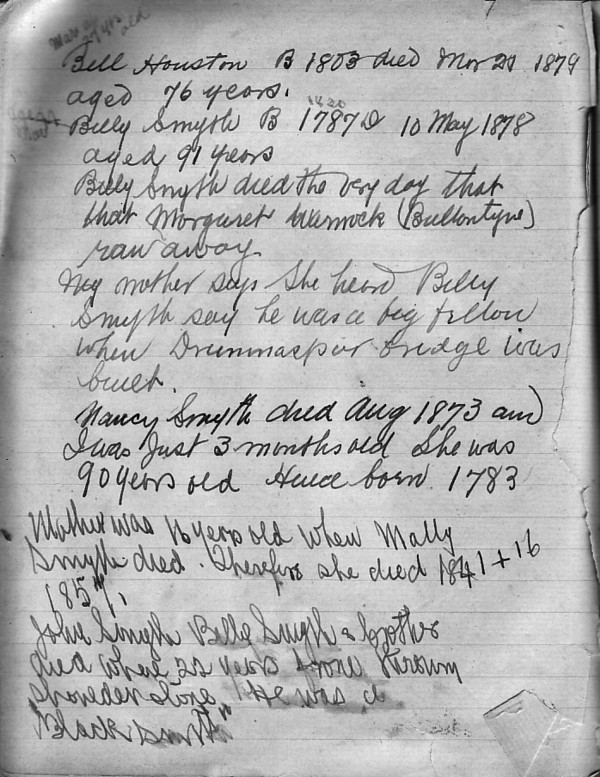 Bell Houston B 1803 died Mar 21 1879
aged 76 years.
Billy Smyth B 1787 D 10 May 1878
aged 91 years
Billy Smyth died the very day that
that Margaret Warnock (Bullontyne)
ran away.
My mother says she heard Billy
Smyth say he was a big fellow
when Drumnaspar bridge was
built.
Nancy Smyth died Aug 1873 and
I was Just 3 months old She was
90 years old Hence born 1783
Mother was 16 years old when Mally
Smyth died. Therefore she died 1841 + 16
1857.
John Smyth Billy Smyth's brother
died when 22 years
He was a
"Black Smith"